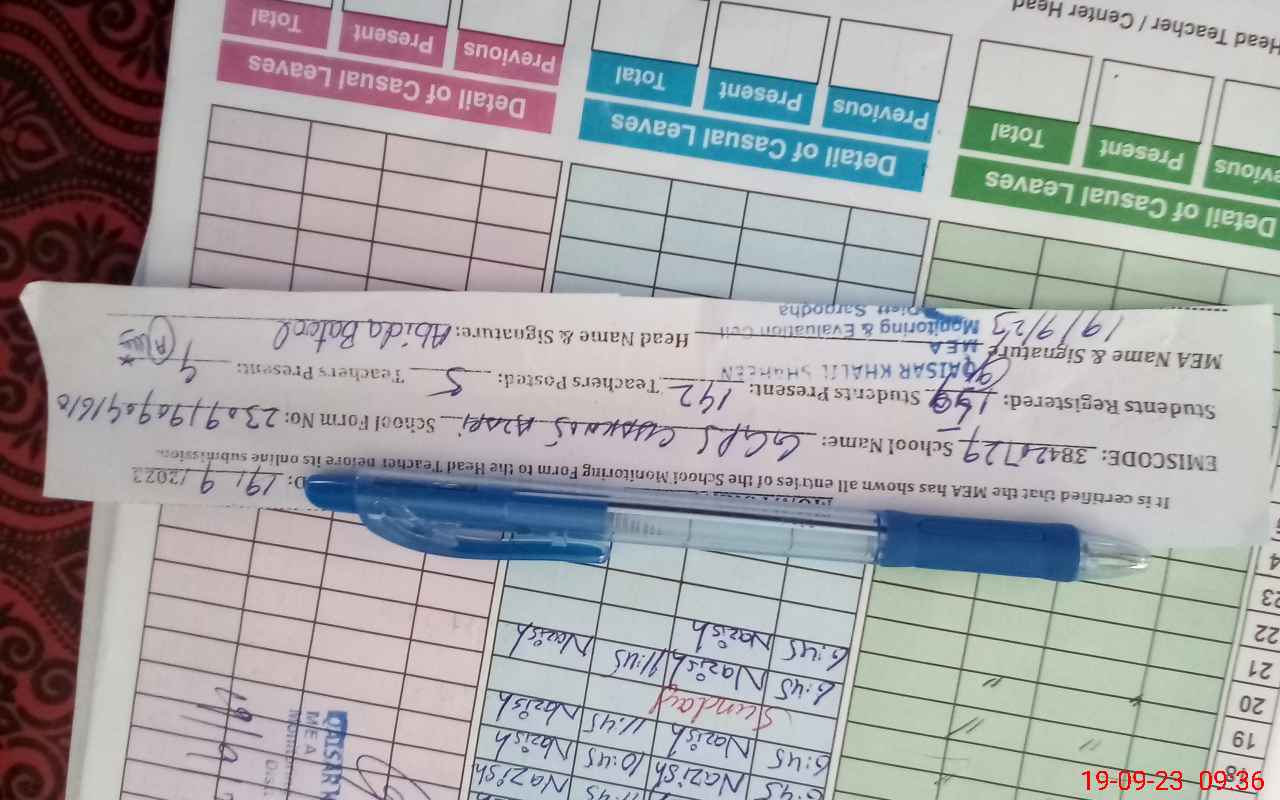 It is certified that the MEA has shown all entries of the School Monitoring Form to the Head Teacher before its online submission.
D: 19/9/2023
EMISCODE: 38420729 School Name: GGPS School Form No: 23091909041610
Students Registered: Students Present: 142 Teachers Posted: 5 Teachers Present: 4
MEA Name & Signature Head Name & Signature: Abida Batool
19/9/23
QAISAR KHALIL SHAHEEN
MEA
Monitoring & Evaluation Cell
Sargodha
Head Teacher / Center Head
Previous Present Total
Detail of Casual Leaves
Previous Present Total
Detail of Casual Leaves
Previous Present Total
Detail of Casual Leaves
23
22
21
20
19
6:45 Nazish
6:45 Nazish 11:45 Nazish
Sunday
6:45 Nazish 11:45 Nazish
6:45 Nazish 10:45 Nazish
QAISAR
MEA
19-09-23 09:36